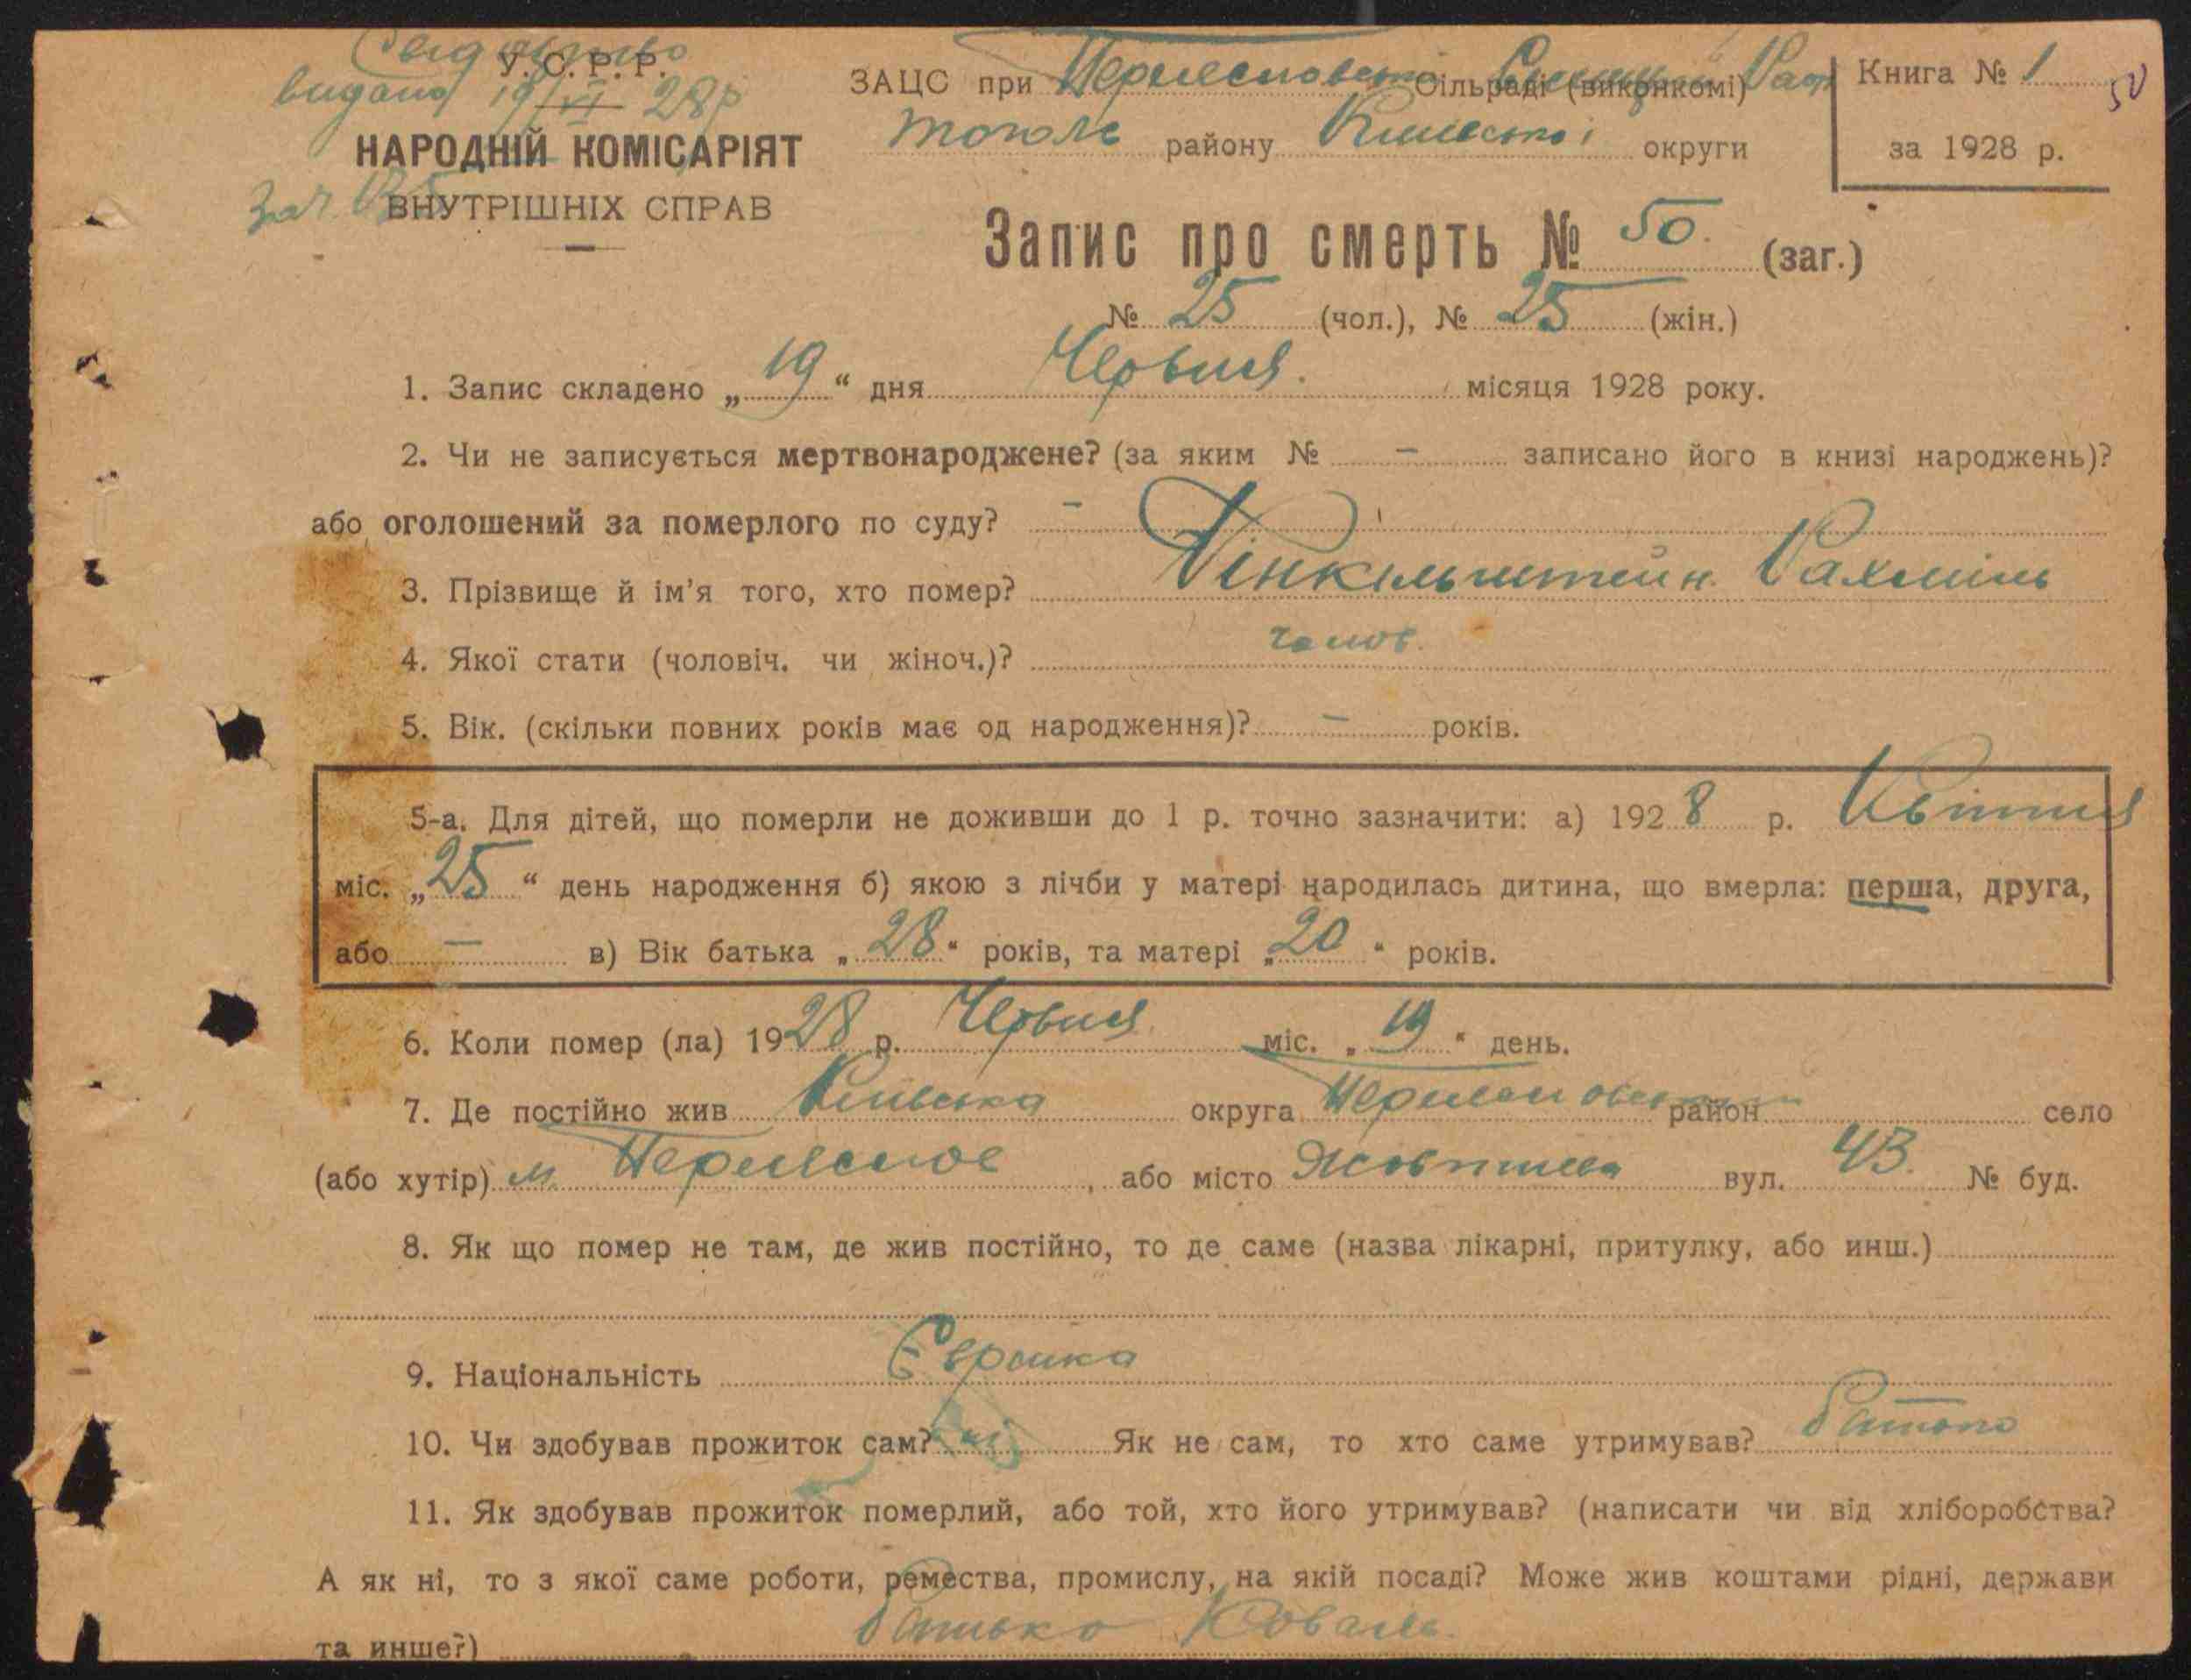 У.С.Р.Р.
видано 19/VI 28р
НАРОДНІЙ КОМІСАРІЯТ
ВНУТРІШНІХ СПРАВ
ЗАЦС при Сільраді (виконкомі)
району Київської округи
Книга № 1
за 1928 р.
50
Запис про смерть № 50. (заг.)
№ 25 (чол.), № 25 (жін.)
1. Запис складено „19“ дня Червня. місяця 1928 року.
2. Чи не записується мертвонароджене? (за яким № — записано його в книзі народжень)?
або оголошений за померлого по суду? —
3. Прізвище й ім'я того, хто помер? Фінкельштейн Рахміль
4. Якої стати (чоловіч. чи жіноч.)? чолов.
5. Вік. (скільки повних років має од народження)? — років.
5-а. Для дітей, що померли не доживши до 1 р. точно зазначити: а) 1928 р. Квітня
міс. „25“ день народження б) якою з лічби у матері народилась дитина, що вмерла: перша, друга,
або — в) Вік батька „28“ років, та матері „20“ років.
6. Коли помер (ла) 1928 р. Червня міс. „19“ день.
7. Де постійно жив Київська округа район село
(або хутір) м. , або місто Жовтнева вул. 43. № буд.
8. Як що помер не там, де жив постійно, то де саме (назва лікарні, притулку, або инш.)
9. Національність Єврейка
10. Чи здобував прожиток сам? ні Як не сам, то хто саме утримував? батько
11. Як здобував прожиток померлий, або той, хто його утримував? (написати чи від хліборобства?
А як ні, то з якої саме роботи, ремества, промислу, на якій посаді? Може жив коштами рідні, держави
та инше?) батько Коваль.